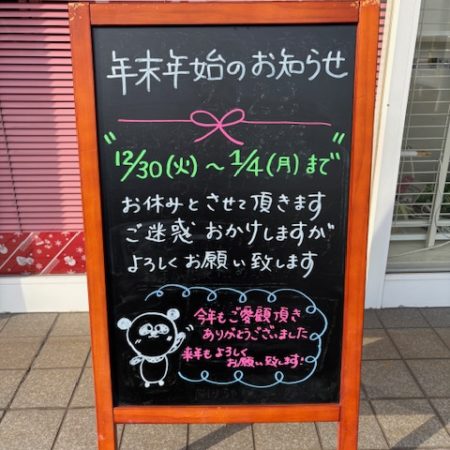 年末年始のお知らせ
"12/30(火)~1/4(月)まで"
お休みとさせて頂きます
ご迷惑おかけしますが
よろしくお願い致します
今年もご愛顧頂き
ありがとうございました
来年もよろしく
お願い致します!